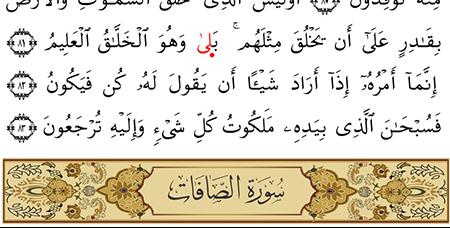 مِنْهُ تُوقِدُونَ ۝٨٠ أَوَلَيْسَ ٱلَّذِى خَلَقَ ٱلسَّمَٰوَٰتِ وَٱلْأَرْضَ
بِقَٰدِرٍ عَلَىٰٓ أَن يَخْلُقَ مِثْلَهُم ۚ بَلَىٰ وَهُوَ ٱلْخَلَّٰقُ ٱلْعَلِيمُ ۝٨١
إِنَّمَآ أَمْرُهُۥٓ إِذَآ أَرَادَ شَيْـًٔا أَن يَقُولَ لَهُۥ كُن فَيَكُونُ ۝٨٢
فَسُبْحَٰنَ ٱلَّذِى بِيَدِهِۦ مَلَكُوتُ كُلِّ شَىْءٍ وَإِلَيْهِ تُرْجَعُونَ ۝٨٣
سُورَةُ الصَّافَاتِ